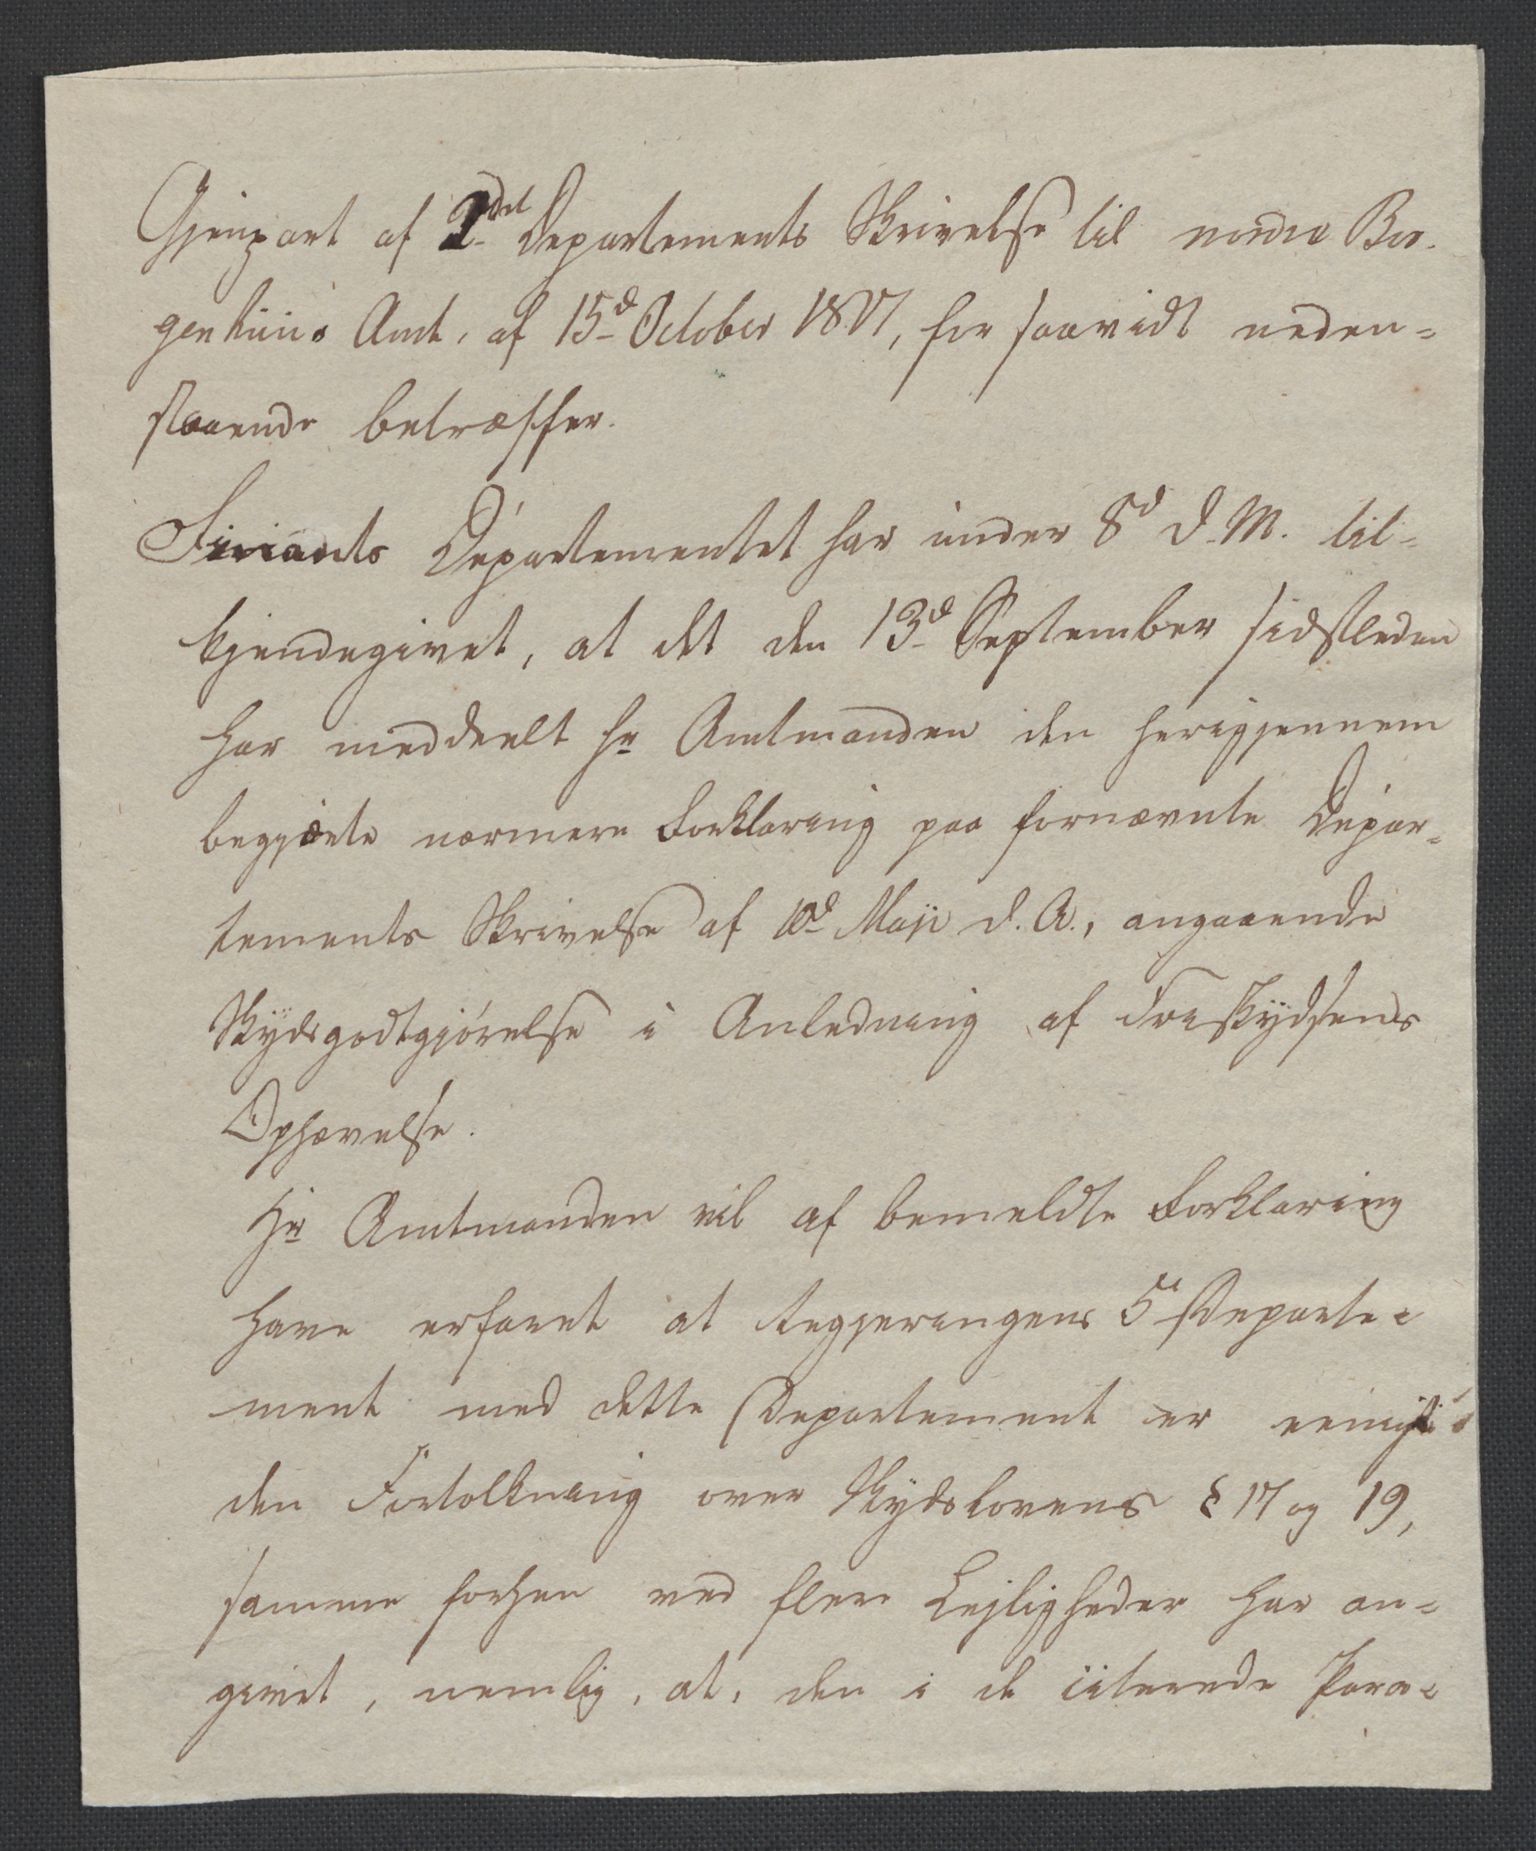 Gjenpart af 2det Departements Skrivelse til nordre Ber-
genhuus Amt, af 15d October 1817, for saavidt neden-
staaende betræffer.
Finants Departementet har under 8d d. M. til-
kjendegivet, at det den 13d September sidstleden
har meddeelt Hr Amtmanden den herigjennem
begjærte nærmere Forklaring paa fornævnte Depar-
tements Skrivelse af 10d Maji d. A., angaaende
Skydsgodtgjørelse i Anledning af Friskydsens
Ophævelse.
Hr Amtmanden vil af bemeldte Forklaring
have erfaret at Regjeringens 5t Departe-
ment med dette Departement er eenigt i
den Fortolkning over Skydslovens § 17 og 19,
samme forhen ved flere Lejligheder har an-
givet, nemlig, at, den i de citerede Para-